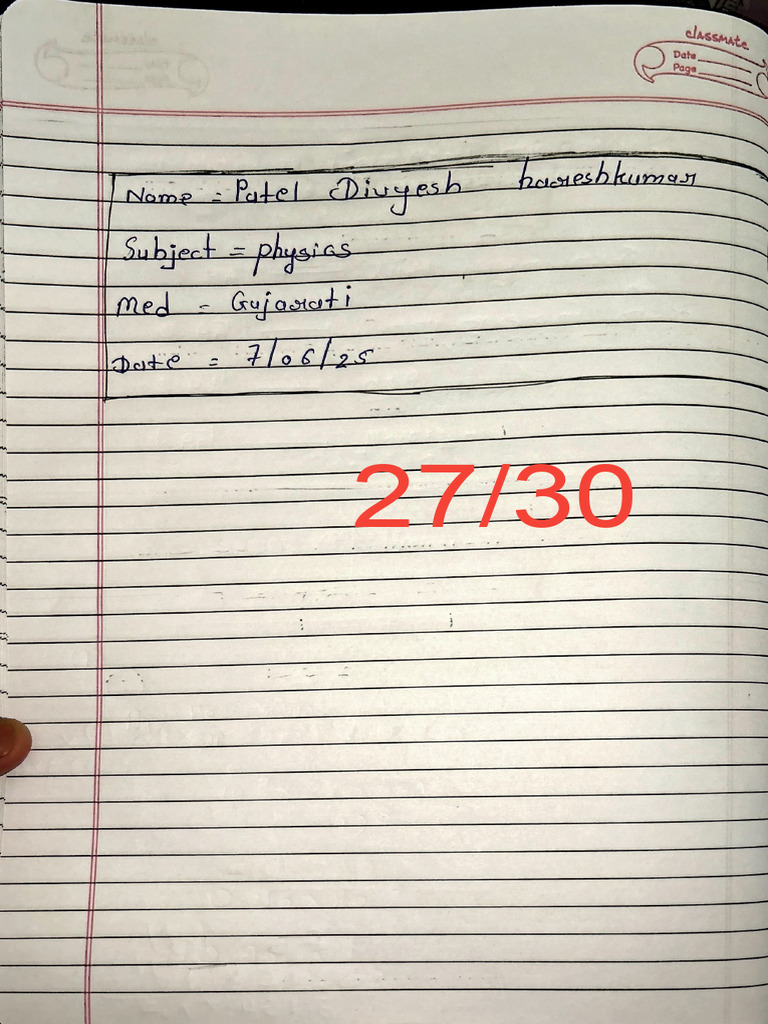 classmate
Date
Page
Name = Patel Divyesh hareshkumar
Subject = physics
Med = Gujarati
Date = 7/06/25
27/30